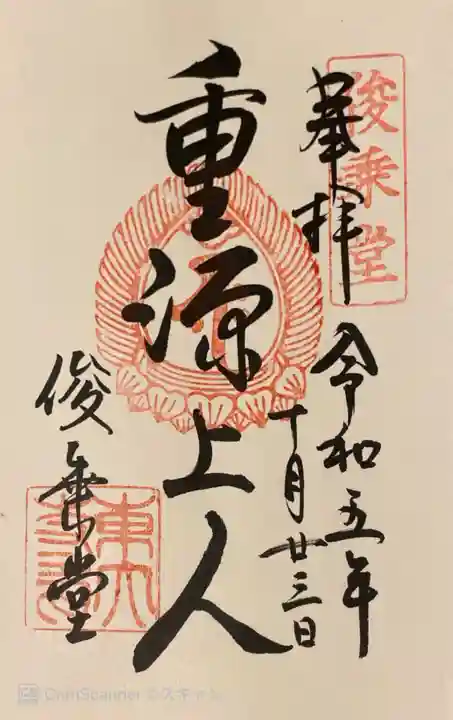 俊乗堂
奉拝
令和五年
十月廿三日
重源上人
俊乗堂
東大
CamScanner でスキャン